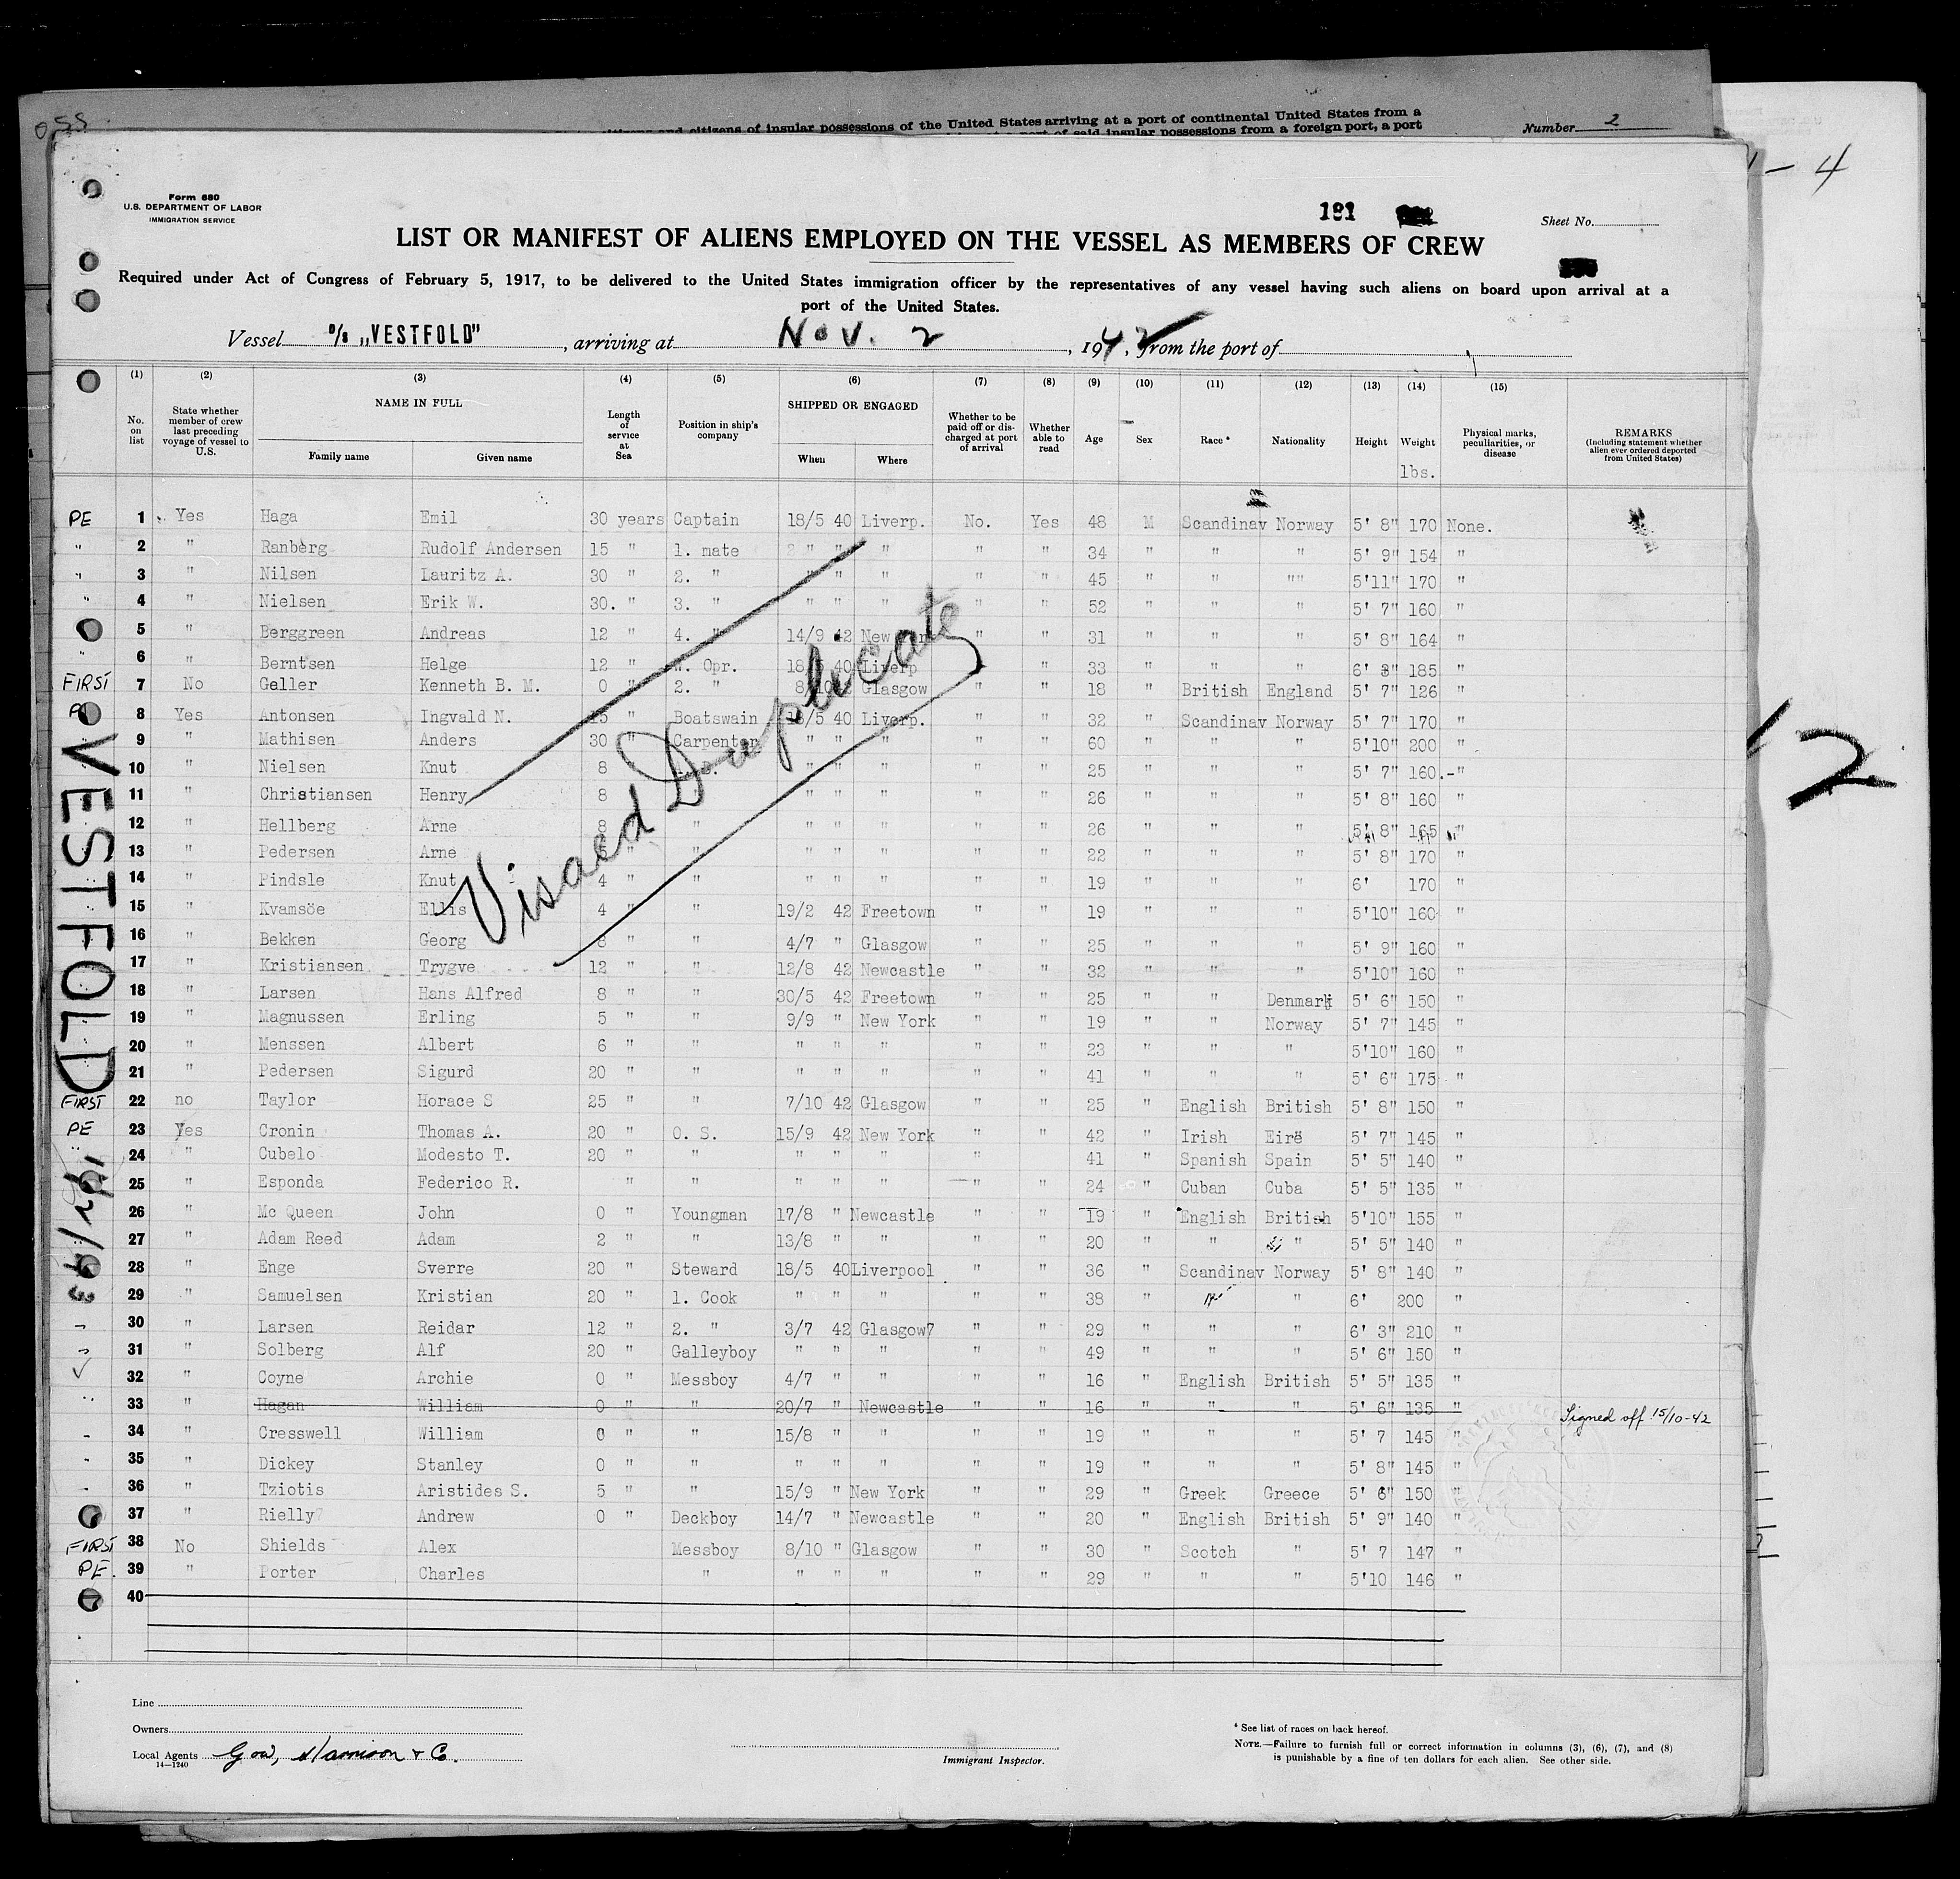 OSS.
citizens and citizens of insular possessions of the United States arriving at a port of continental United States from a
port of said insular possessions from a foreign port, a port
Number 2
- 4
Form 680
U.S. DEPARTMENT OF LABOR
IMMIGRATION SERVICE
191
Sheet No.
LIST OR MANIFEST OF ALIENS EMPLOYED ON THE VESSEL AS MEMBERS OF CREW
Required under Act of Congress of February 5, 1917, to be delivered to the United States immigration officer by the representatives of any vessel having such aliens on board upon arrival at a
port of the United States.
Vessel "VESTFOLD", arriving at Nov. 2, 1942, from the port of
(1) (2) (3) (4) (5) (6) (7) (8) (9) (10) (11) (12) (13) (14) (15)
No. on list
State whether member of crew last preceding voyage of vessel to U.S.
NAME IN FULL
Family name Given name
Length of service at Sea
Position in ship's company
SHIPPED OR ENGAGED
When Where
Whether to be paid off or discharged at port of arrival
Whether able to read
Age
Sex
Race *
Nationality
Height
Weight
lbs.
Physical marks, peculiarities, or disease
REMARKS
(Including statement whether alien ever ordered deported from United States)
PE 1 Yes Haga Emil 30 years Captain 18/5 40 Liverp. No. Yes 48 M Scandinav Norway 5' 8" 170 None.
" 2 " Ranberg Rudolf Andersen 15 " 1. mate " " " " " 34 " " " 5' 9" 154 "
" 3 " Nilsen Lauritz A. 30 " 2. " " " " " " 45 " " "" 5'11" 170 "
" 4 " Nielsen Erik W. 30. " 3. " " " " " " 52 " " " 5' 7" 160 "
5 " Berggreen Andreas 12 " 4. " 14/9 42 New " " 31 " " " 5' 8" 164 "
" 6 " Berntsen Helge 12 " W. Opr. 18/5 40 Liverp " 33 " " " 6' 3" 185 "
FIRST 7 No Geller Kenneth B. M. 0 " 2. " 8/10 Glasgow " " 18 " British England 5' 7" 126 "
8 Yes Antonsen Ingvald N. 15 " Boatswain 18/5 40 Liverp. " " 32 " Scandinav Norway 5' 7" 170 "
9 " Mathisen Anders 30 " Carpenter " " " " " 60 " " " 5'10" 200 "
10 " Nielsen Knut 8 " " " " " 25 " " " 5' 7" 160.-"
11 " Christiansen Henry 8 " " " " " 26 " " " 5' 8" 160 "
12 " Hellberg Arne 8 " " " " " " " 26 " " " 5' 8" 165 "
13 " Pedersen Arne " " " " " " " 22 " " " 5' 8" 170 "
14 " Pindsle Knut 4 " " " " " " " 19 " " " 6' 170 "
15 " Kvamsöe Ellis 4 " " 19/2 42 Freetown " " 19 " " " 5'10" 160 "
16 " Bekken Georg 8 " " 4/7 " Glasgow " " 25 " " " 5' 9" 160 "
17 " Kristiansen Trygve 12 " " 12/8 42 Newcastle " " 32 " " " 5'10" 160 "
18 " Larsen Hans Alfred 8 " " 30/5 42 Freetown " " 25 " " Denmark 5' 6" 150 "
19 " Magnussen Erling 5 " " 9/9 " New York " " 19 " " Norway 5' 7" 145 "
20 " Menssen Albert 6 " " " " " " " 23 " " " 5'10" 160 "
21 " Pedersen Sigurd 20 " " " " " " " 41 " " " 5' 6" 175 "
FIRST 22 no Taylor Horace S 25 " " 7/10 42 Glasgow " " 25 " English British 5' 8" 150 "
PE 23 Yes Cronin Thomas A. 20 " O. S. 15/9 42 New York " " 42 " Irish Eire 5' 7" 145 "
24 " Cubelo Modesto T. 20 " " " " " " " 41 " Spanish Spain 5' 5" 140 "
25 " Esponda Federico R. " " " " " " " 24 " Cuban Cuba 5' 5" 135 "
26 " Mc Queen John 0 " Youngman 17/8 " Newcastle " " 19 " English British 5'10" 155 "
27 " Adam Reed Adam 2 " " 13/8 " " " " 20 " " " 5' 5" 140 "
28 " Enge Sverre 20 " Steward 18/5 40 Liverpool " " 36 " Scandinav Norway 5' 8" 140 "
29 " Samuelsen Kristian 20 " 1. Cook " " " " " 38 " " " 6' 200 "
30 " Larsen Reidar 12 " 2. " 3/7 42 Glasgow7 " " 29 " " " 6' 3" 210 "
31 " Solberg Alf 20 " Galleyboy " " " " " 49 " " " 5' 6" 150 "
✓ 32 " Coyne Archie 0 " Messboy 4/7 " " " " 16 " English British 5' 5" 135 "
33 " Hagan William 0 " " 20/7 " Newcastle " " 16 " " " 5' 6" 135 " Signed off 15/10-42
34 " Cresswell William 0 " " 15/8 " " " " 19 " " " 5' 7 145 "
35 " Dickey Stanley 0 " " " " " " " 19 " " " 5' 8" 145 "
36 " Tziotis Aristides S. 5 " " 15/9 " New York " " 29 " Greek Greece 5' 6" 150 "
37 " Rielly7 Andrew 0 " Deckboy 14/7 " Newcastle " " 20 " English British 5' 9" 140 "
FIRST 38 No Shields Alex Messboy 8/10 " Glasgow " " 30 " Scotch " 5' 7 147 "
PE. 39 " Porter Charles " " " " " " 29 " " " 5'10 146 "
40
VESTFOLD
Visaed Duplicate
12
Line
Owners
Local Agents Gow, Harrison & Co.
14—1240
Immigrant Inspector.
* See list of races on back hereof.
NOTE.—Failure to furnish full or correct information in columns (3), (6), (7), and (8)
is punishable by a fine of ten dollars for each alien. See other side.